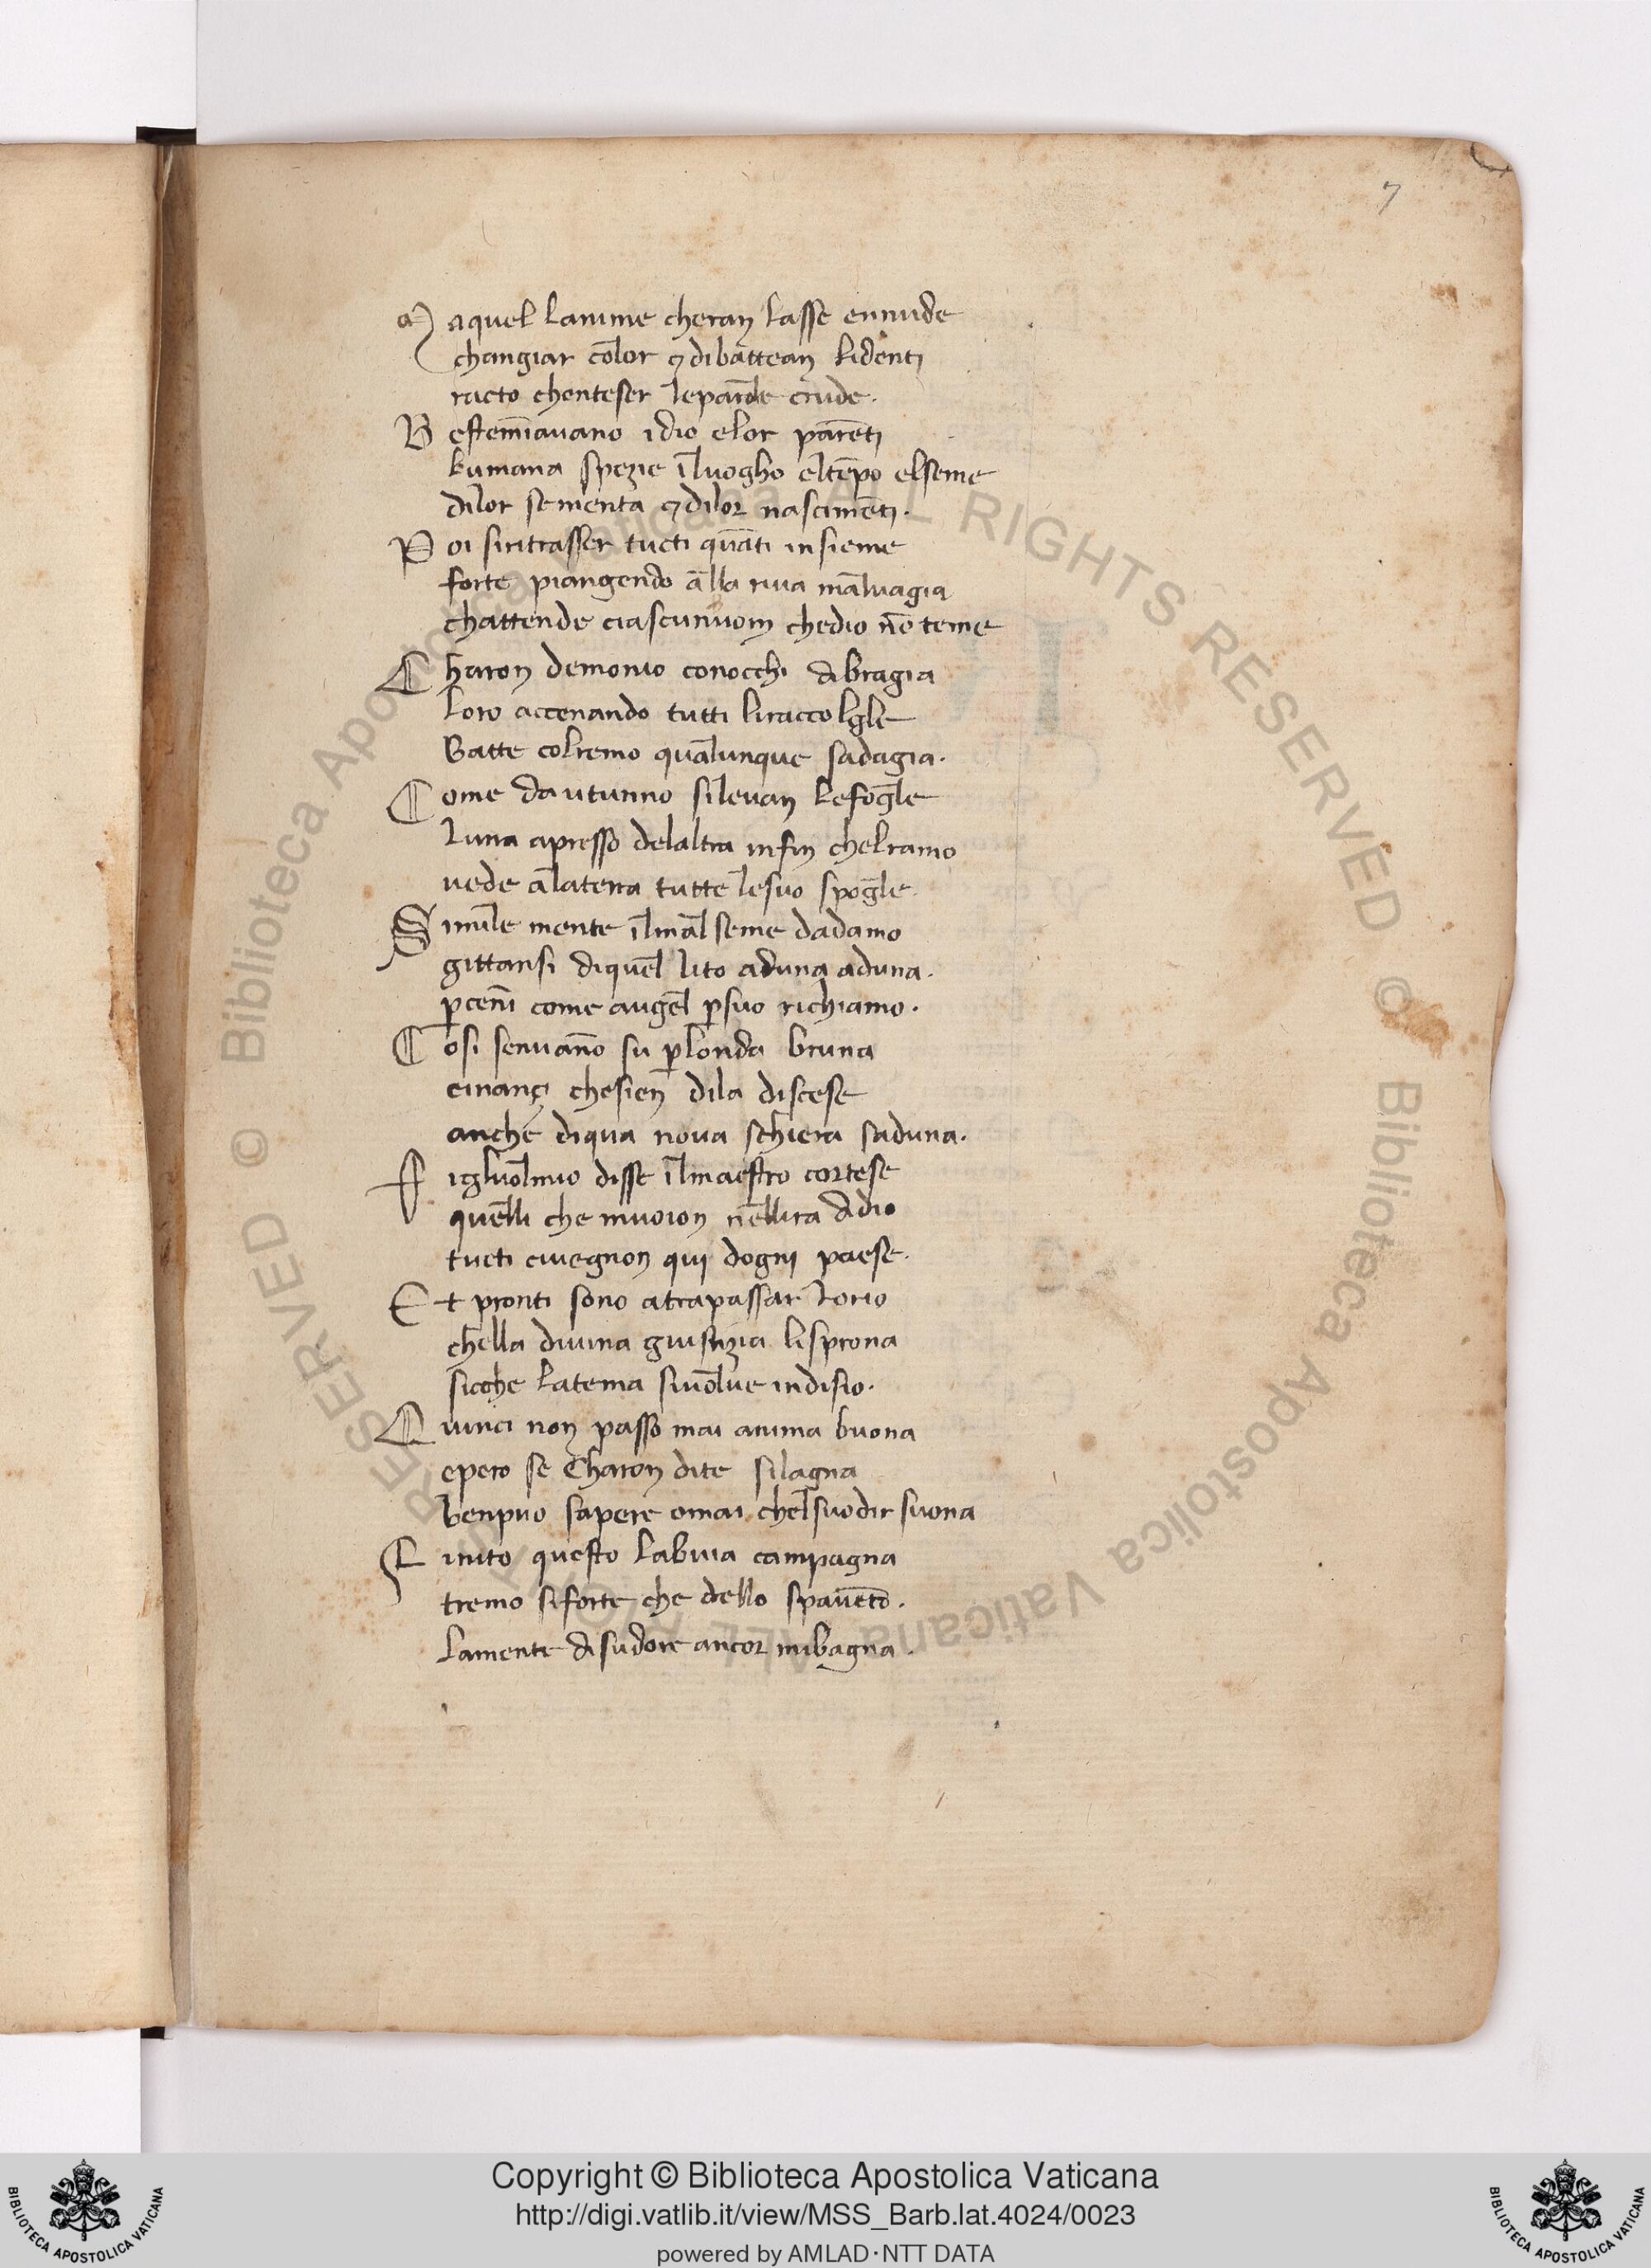 7
M aquel lanime cheran lasse ennude
changiar color ⁊ dibattean lidenti
racto chenteser leparole crude.
B estemiavano idio elor parenti
lumana spezie il luogho eltēpo elseme
dilor sementa ⁊ dilor nascimēti.
P oi siritrasser tucti quāti insieme
forte piangendo alla riva malvagia
chattende ciascunuom chedio nō teme
C haron demonio conocchi di bragia
loro accenando tutti liraccolgle
Batte colremo qualunque sadagia.
C ome dautunno silevan lefogle
luna apresso delaltra infin chelramo
vede alaterra tutte lesuo spogle.
S imile mente il mal seme dadamo
gittansi diquel lito aduna aduna.
p̄cenni come augel p̄suo richiamo.
C osi senvanno su p̄londa bruna
einançi chesien dila discese
anche diqua nova schiera saduna.
F igluolmio disse il maestro cortese
quelli che muoion nellira didio
tucti cuvegnon qui dogni paese.
E t pronti sono atrapassar lorio
chella divina giustizia lisprona
sicche latema sivolve indisio.
Q uinci non passo mai anima buona
epero se Charon dite silagna
benpuo sapere omai chelsuodir suona
F inito questo labuia campagna
tremo siforte che dello spavēto.
lamente disudore ancor mibagna.
Copyright © Biblioteca Apostolica Vaticana
http://digi.vatlib.it/view/MSS_Barb.lat.4024/0023
powered by AMLAD·NTT DATA
BIBLIOTECA APOSTOLICA VATICANA
BIBLIOTECA APOSTOLICA VATICANA
© Biblioteca Apostolica Vaticana ALL RIGHTS RESERVED
© Biblioteca Apostolica Vaticana ALL RIGHTS RESERVED